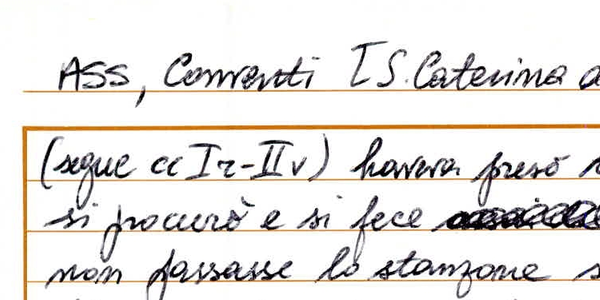 ASS, Conventi [S. Caterina d
(segue cc Ir-IIv) haveva preso
si procurò e si fece
non passasse lo stanzone s